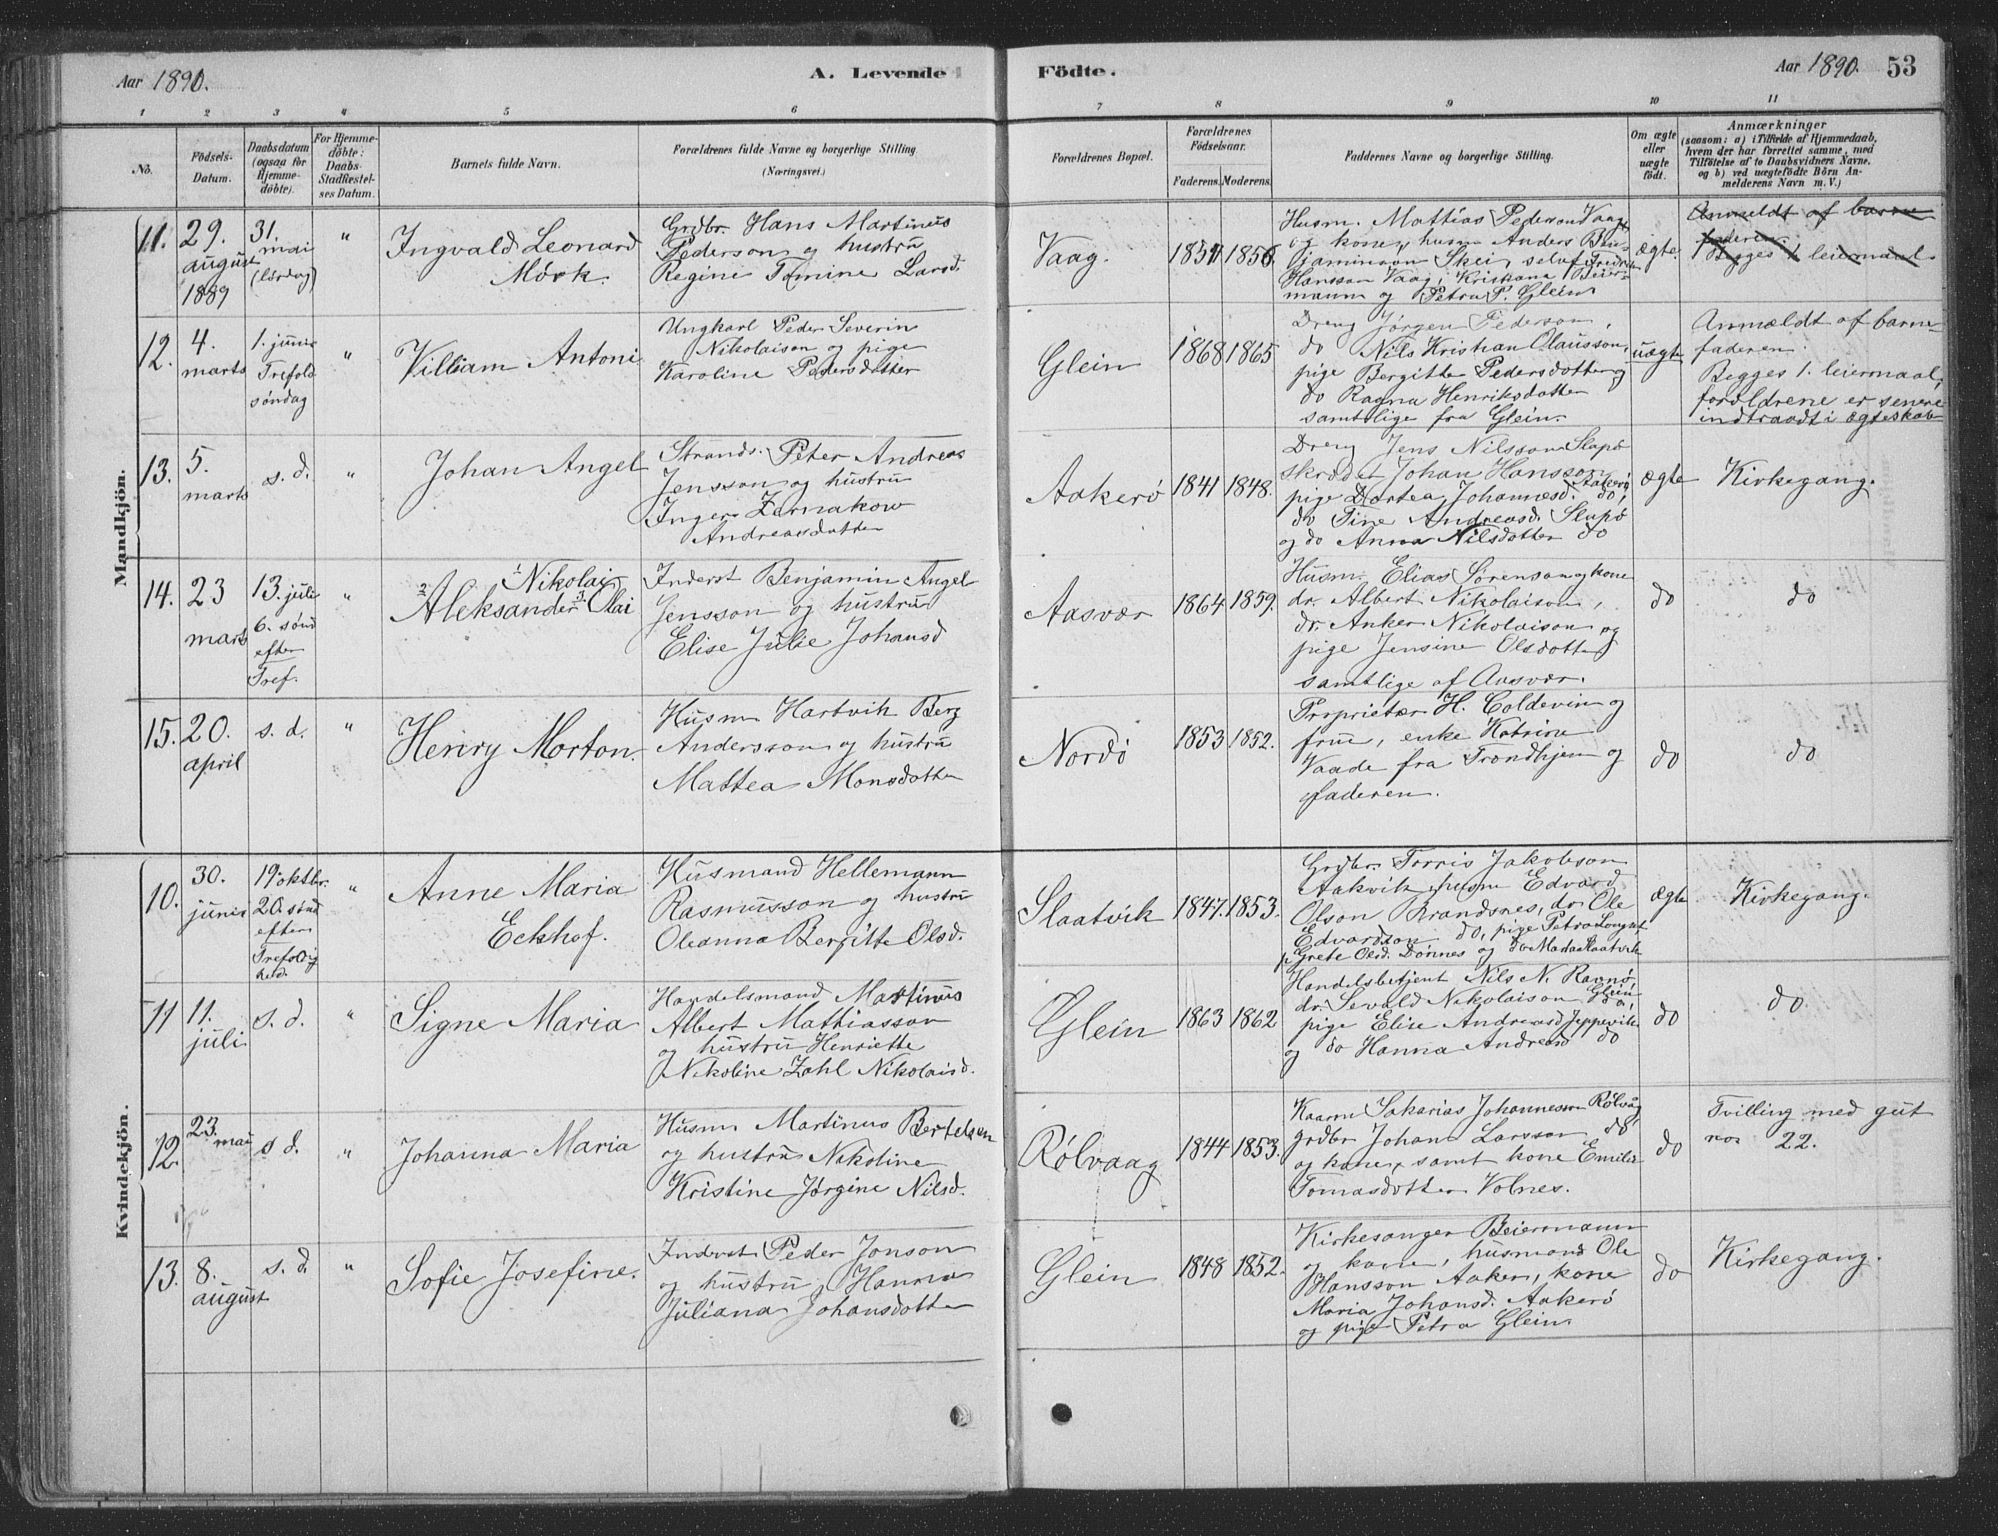 Aar 1890.
A. Levende
Födte.
Aar 1890.
53
1 2 3 4 5 6 7 8 9 10 11
No.
Födsels-Datum.
Daabsdatum (ogsaa for Hjemme-döbte).
For Hjemme-döbte: Daabs-Stadfæstelses Datum.
Barnets fulde Navn.
Forældrenes fulde Navne og borgerlige Stilling. (Næringsvei.)
Forældrenes Bopæl.
Forældrenes Födselsaar.
Faderens. Moderens.
Faddernes Navne og borgerlige Stilling.
Om ægte eller uægte födt.
Anmærkninger
(saasom: a) i Tilfælde af Hjemmedaab, hvem der har forrettet samme, med Tilföielse af to Daabsvidners Navne. og b) ved uægtefödte Börn Anmelderens Navn m. V.)
Mandkjön.
11. 29. august 1889
31. mai (lördag)
"
Ingvald Leonard
Mörk.
Grdbr. Hans Martinus
Pederson og hustru
Regine Tomine Larsd.
Vaag.
1851 1856
Husm. Mattias Pederson Vaag
og kone, husm Anders Ben-
jaminson Skei, selvf Fredrik
Hansson Vaag, Kristiana Beier-
mann og Petra P. Glein.
ægte.
Anmeldt af barne
faderen.
Begges 1 leiermaal.
12. 4. marts
1. juni Trefold. söndag
"
Villiam Antoni
Ungkarl Peder Severin
Nikolaison og pige
Karoline Pedersdotter
Glein
1868 1865
Dreng Jörgen Pederson,
do Nils Kristian Olausson,
pige Bergitte Pedersdotter og
do Ragna Henriksdotter
samtlige fra Glein.
uægte
Anmældt af barne-
faderen.
Begges 1. leiermaal,
foroldrene er senere
indtraadt i ægteskab
13. 5. marts
s. d.
"
Johan Angel
Strands. Peter Andreas
Jensson og hustru
Inger Zernakow
Andreasdotter
Aakerö
1841 1848.
Dreng Jens Nilsson Slapö
skrædder Johan Hansson Aakerö
pige Dortea Johannesd. do,
do Tine Andreasd. Slapö
og do Anna Nilsdotter do
ægte
Kirkegang.
14. 23 marts
13. juli 6. sönd efter Tref.
"
1 Nikolai
2 Aleksander 3 Olai
Inderst Benjamin Angel
Jensson og hustru
Elise Julie Johansd
Aasvær
1864 1859.
Husm. Elias Sörenson og kone
dr. Albert Nikolaison,
dr. Anker Nikolaison og
pige Jensine Olsdotter
samtlige af Aasvær.
do
do
15. 20. april
s. d.
"
Henry Morton.
Husm Hartvik Berg
Andersson og hustru
Mattea Monsdotter
Nordö
1853 1852.
Proprietær H. Coldevin og
frue, enke Katrine
Vaade fra Trondhjem og
faderen.
do
do
Kvindekjön.
10. 30. juni
19. oktbr. 20. sönd efter Trefoldighed.
"
Anne Maria
Eckhof.
Husmand Hellemann
Rasmusson og hustru
Oleanna Bergitte Olsd.
Slaatvik
1847. 1853.
Grdbr. Torris Jakobson
Aakvik, husm Edvard
Olson Brandsnes, dr. Ole
Edvardson do, pige Petra Longset
Grete Olsd. Dönnes og do Maria Slaatvik
ægte
Kirkegang.
11 11. juli
s. d.
"
Signe Maria
Handelsmand Martinus
Albert Mattiasson
og hustru Henriette
Nikoline Zahl Nikolaisd.
Glein
1863 1862
Handelsbetjent Nils N. Ravnö,
dr. Sevald Nikolaison Glein
pige Elise Andreasd Jeppevik
og do Hanna Andreasd do
do
do.
12. 23. mai
s d.
"
Johanna Maria
Husm Martinus Bertelsen
og hustru Nikoline
Kristine Jörgine Nilsd.
Rølvaag
1844 1853.
Kaarm Sakarias Johannesson Rølvåg,
grdbr Johan Larsson do
og kone, samt kone Emilie
Tomasdotter Volnes.
do
Tvilling med gut
no. 22.
13. 8. august
s. d.
"
Sofie Josefine.
Inderst Peder Jonson
og hustru Hanna
Juliana Johansdotter
Glein
1848 1852.
Kirkesanger Beiermann
og kone, husmand Ole
Hansson Aaker, kone
Maria Johansd. Aakerö
og pige Petra Glein
do
Kirkegang.